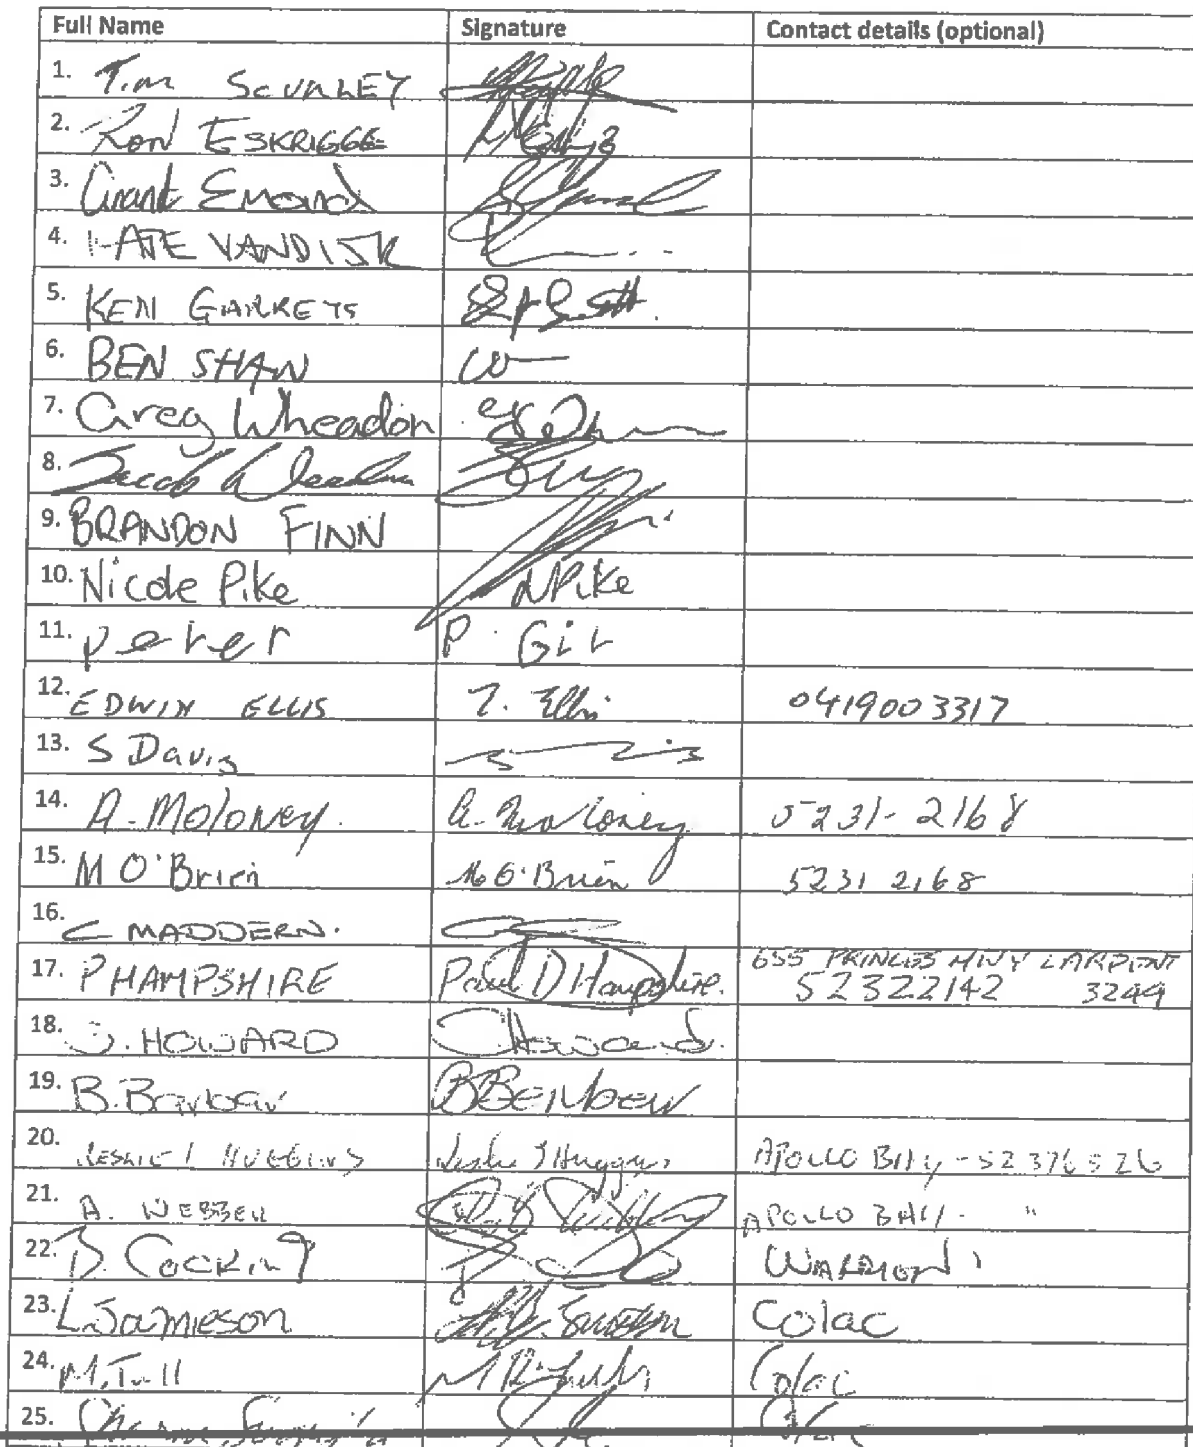 Full Name Signature Contact details (optional)
1. Tim
2. Ron ESKRIGGE
3. Grant
4. KATE VANDISK
5. KEN GARRETS
6. BEN SHAW
7. Greg Wheadon
8. Jacob Wheadon
9. BRANDON FINN
10. Nicole Pike NPike
11. Peter P. Gil
12. EDWIN ELLIS Ellis 0419003317
13. S Davis
14. A. Moloney. A. Moloney 5231-2168
15. M O'Brien M O'Brien 5231 2168
16. C MADDERN.
17. P HAMPSHIRE Paul D Hampshire. 655 PRINCES HWY LARPENT
52322142 3249
18. J. HOWARD Howard.
19. B.
20. LESLIE J HUGGINS Leslie J Huggins APOLLO BAY - 52376526
21. A. WEBBER APOLLO BAY. "
22. B. COCKING
23. L Jamieson Colac
24. M. Tull Colac
25.